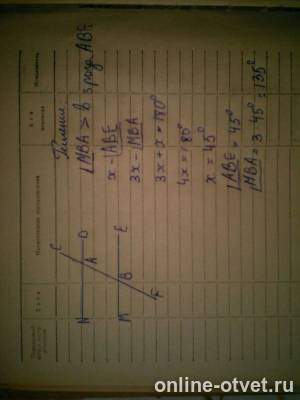 Решение
∠MBA > в 3 раза ABE
x - ∠ABE
3x - ∠MBA
3x + x = 180°
4x = 180°
x = 45°
∠ABE = 45°
∠MBA = 3·45° = 135°
C
N A D
M B E
F
online-otvet.ru